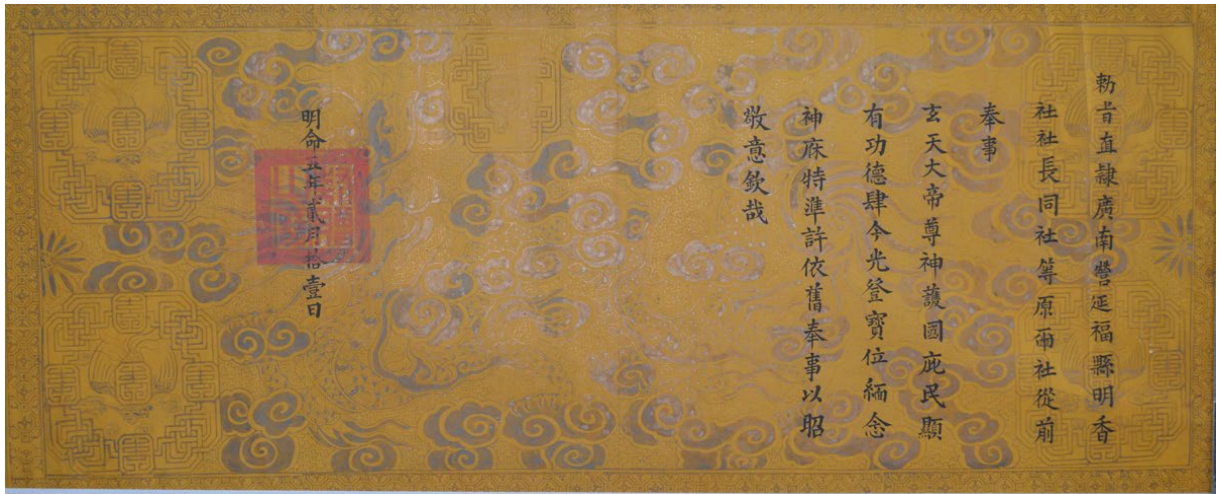 勅旨直隸廣南營延福縣明香
社社長同社等原爾社從前
奉事
玄天大帝尊神護國庇民顯
有功德肆今光登寶位緬念
神庥特準許依舊奉事以昭
敬意欽哉
明命五年貳月拾壹日